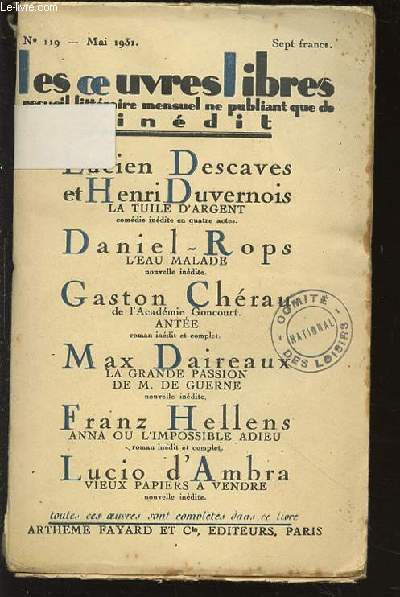 Le-livre.com
N° 119 — Mai 1931.
Sept francs.
les œuvres libres
recueil littéraire mensuel ne publiant que de
inédit
Lucien Descaves
et Henri Duvernois
LA TUILE D'ARGENT
comédie inédite en quatre actes.
Daniel-Rops
L'EAU MALADE
nouvelle inédite.
Gaston Chérau
de l'Académie Goncourt.
ANTÉE
roman inédit et complet.
Max Daireaux
LA GRANDE PASSION
DE M. DE GUERNE
nouvelle inédite.
Franz Hellens
ANNA OU L'IMPOSSIBLE ADIEU
roman inédit et complet.
Lucio d'Ambra
VIEUX PAPIERS A VENDRE
nouvelle inédite.
COMITÉ
NATIONAL
DES LOISIRS
toutes ces œuvres sont complètes dans ce livre
ARTHÈME FAYARD ET Cie, EDITEURS, PARIS